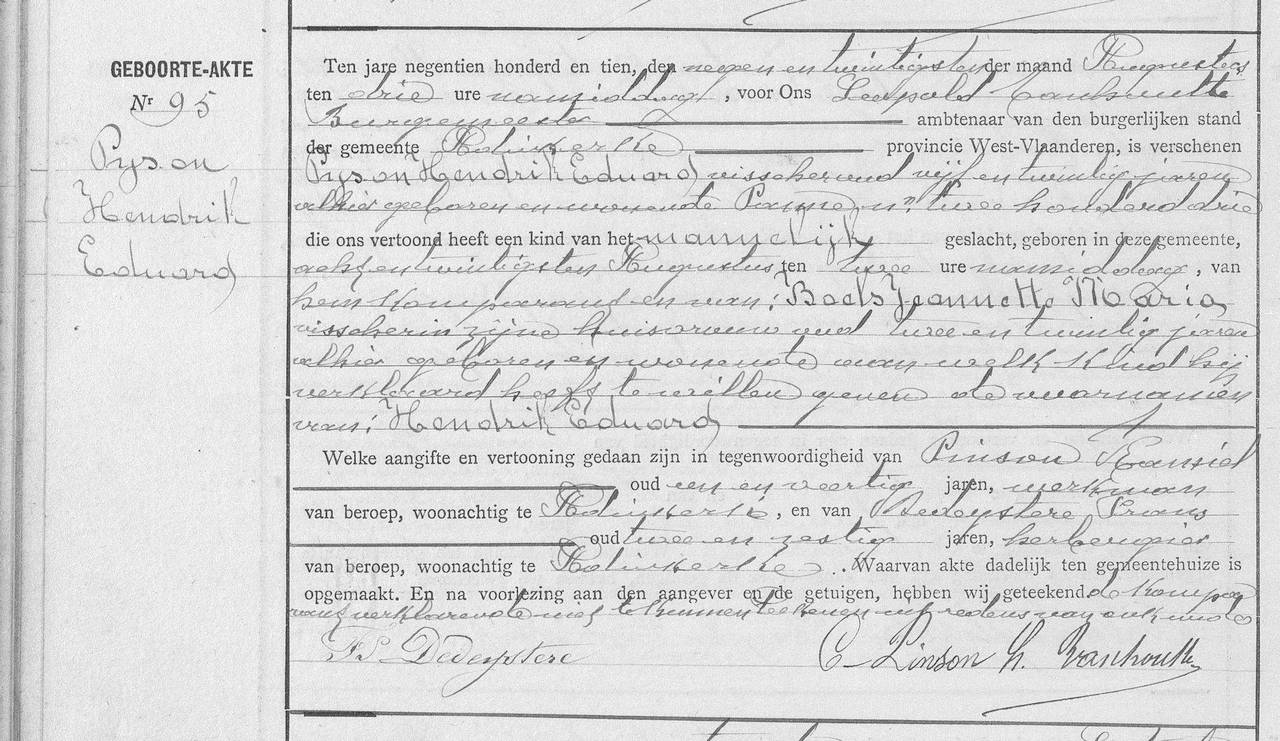 GEBOORTE-AKTE
Nr 95
Pyson
Hendrik
Eduard
Ten jare negentien honderd en tien, den negen en twintigsten der maand Augustus
ten drie ure namiddag, voor Ons Leopold Vanhoutte
Burgemeester ambtenaar van den burgerlijken stand
der gemeente Adinkerke provincie West-Vlaanderen, is verschenen
Pyson Hendrik Eduard visscher oud vijf en twintig jaren
alhier geboren en wonende Panne nr twee honderd drie
die ons vertoond heeft een kind van het mannelijk geslacht, geboren in deze gemeente,
acht en twintigsten Augustus ten twee ure namiddag, van
hem Komparant en van: Boels Jeannette Maria
visscherin zijne huisvrouw oud twee en twintig jaren
alhier geboren en wonende aan welk Kind hij
verklaard heeft te willen geven de voornamen
van: Hendrik Eduard
Welke aangifte en vertooning gedaan zijn in tegenwoordigheid van Pinson
oud een en veertig jaren, werkman
van beroep, woonachtig te Adinkerke, en van Dedeystere Frans
oud twee en zestig jaren, herbergier
van beroep, woonachtig te Adinkerke. Waarvan akte dadelijk ten gemeentehuize is
opgemaakt. En na voorlezing aan den aangever en de getuigen, hebben wij geteekend de Kompa
rant verklarende niet te kunnen teekenen uit redens van onkunde
Fs Dedeystere
C Pinson L. Vanhoutte